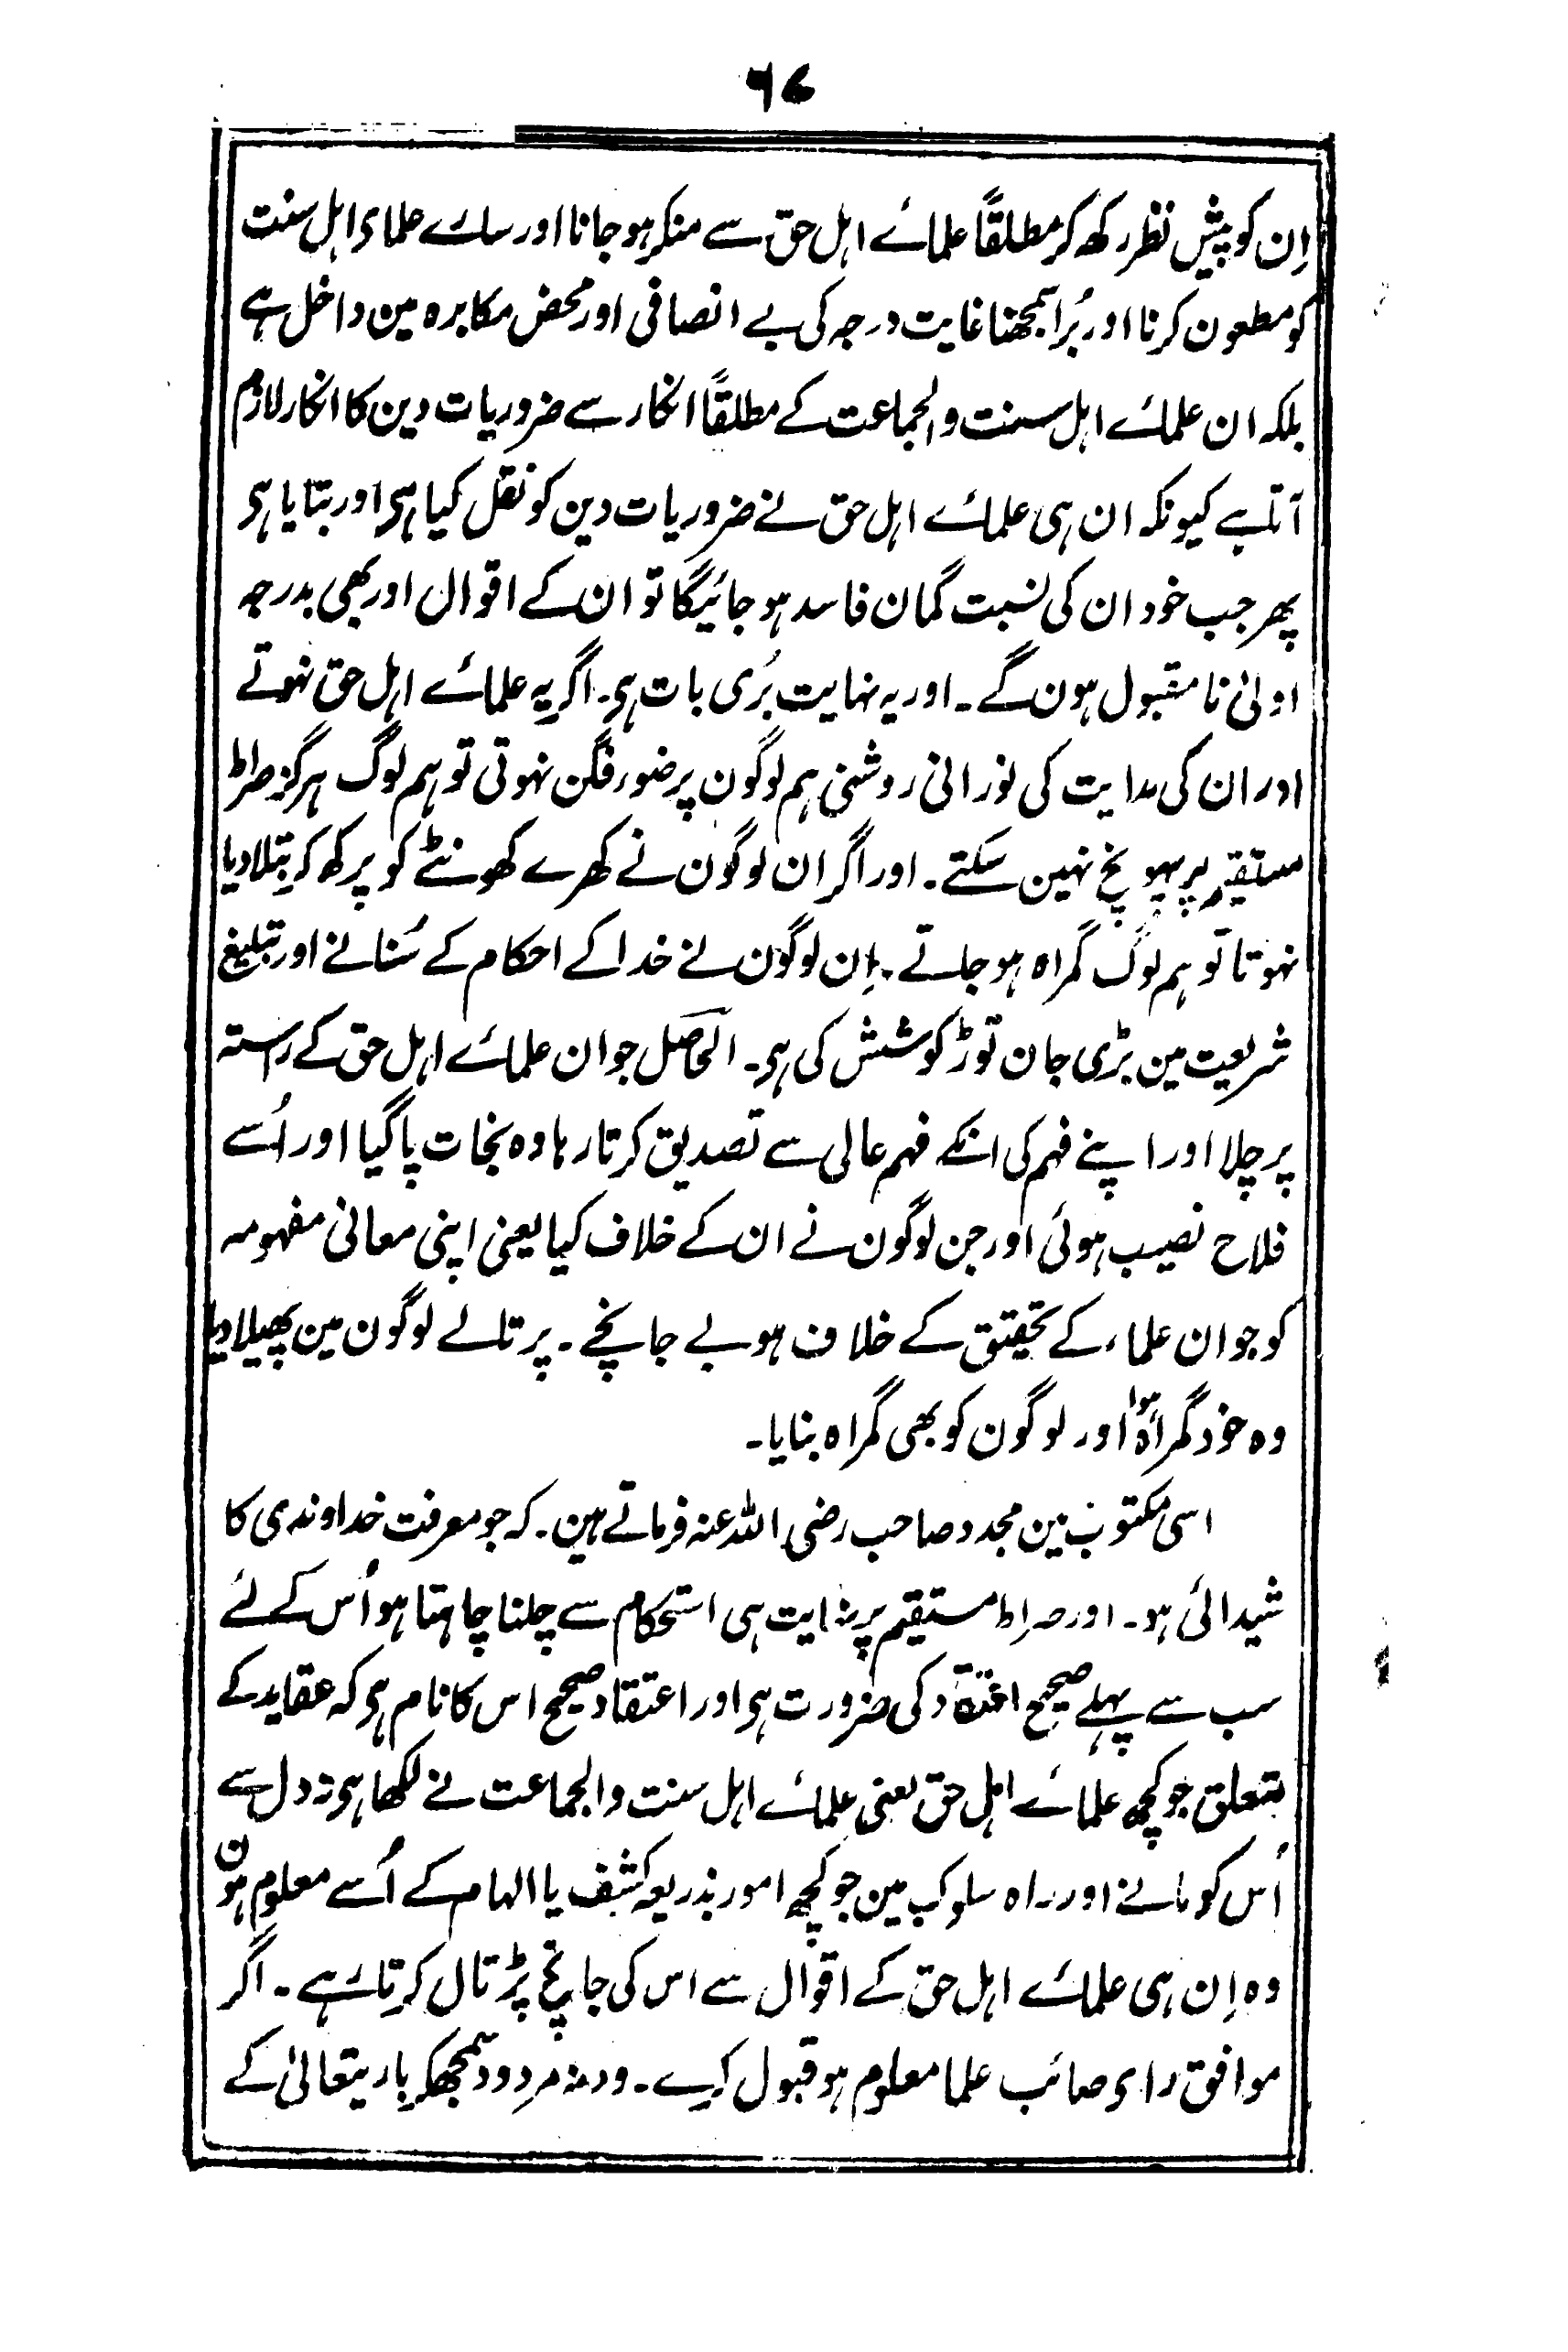 ۶۷
اِن کو پیش نظر رکھ کر مطلقًا علمائے اہل حق سے منکر ہو جانا اور سارے علمای اہل سنت
کو مطعون کرنا اور بُرا سمجھنا غایت درجہ کی بے انصافی اور محض مکابرہ مین داخل ہے
بلکہ ان علمائے اہل سنت والجماعت کے مطلقًا انکار سے ضروریات دین کا انکار لازم
آتا ہے کیونکہ ان ہی علمائے اہل حق نے ضروریات دین کو نقل کیا ہی اور بتایا ہی
پھر جب خود ان کی نسبت گمان فاسد ہو جائیگا تو ان کے اقوال اور بھی بدرجہ
اولیٰ نا مقبول ہون گے۔ اور یہ نہایت بُری بات ہی۔ اگر یہ علمائے اہل حق نہوتے
اور ان کی ہدایت کی نورانی روشنی ہم لوگون پر ضوء فگن نہوتی تو ہم لوگ ہرگز صراط
مستقیم پر پہونچ نہین سکتے۔ اور اگر ان لوگون نے کھرے کھونٹے کو پرکھ کر بتلا دیا
نہوتا تو ہم لوگ گمراہ ہو جاتے۔ اِن لوگون نے خدا کے احکام کے سُنانے اور تبلیغ
شریعت مین بڑی جان توڑ کوشش کی ہی۔ الحاصل جو ان علمائے اہل حق کے رستہ
پر چلا اور اپنے فہم کی انکے فہم عالی سے تصدیق کرتا رہا وہ نجات پا گیا اور اُسے
فلاح نصیب ہوئی اور جن لوگون نے ان کے خلاف کیا یعنی اپنی معانی مفہومہ
کو جو ان علماء کے تحقیق کے خلاف ہو بے جانچے۔ پرتالے لوگون مین پھیلا دیا
وہ خود گمراہ ہوا اور لوگون کو بھی گمراہ بنایا۔
اسی مکتوب مین مجدد صاحب رضی اللہ عنہ فرماتے ہین۔ کہ جو معرفت خداوندی کا
شیدائی ہو۔ اور صراط مستقیم پر نہایت ہی استحکام سے چلنا چاہتا ہو اُس کے لئے
سب سے پہلے صحیح اعتقاد کی ضرورت ہی اور اعتقاد صحیح اس کا نام ہی کہ عقاید کے
متعلق جو کچھ علمائے اہل حق یعنی علمائے اہل سنت والجماعت نے لکھا ہی تہ دل سے
اُس کو مانے اور راہ سلوک مین جو کچھ امور بذریعہ کشف یا الہام کے اُسے معلوم ہون
وہ اِن ہی علمائے اہل حق کے اقوال سے اس کی جانچ پڑتال کرتا رہے۔ اگر
موافق رای صائب علما معلوم ہو قبول کرے۔ ورنہ مردود سمجھکر باریتعالیٰ کے